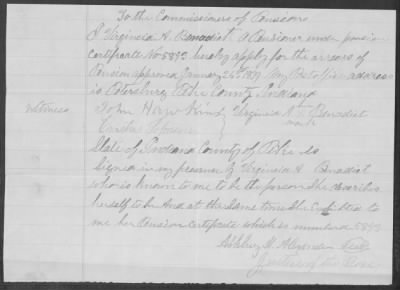 To the Commissioners of Pensions
I Virginia A. Benedict A Pensioner under pension
Certificate No 5893 hereby apply for the arrears of
Pension approved January 25th 1879 My Post office address
is Petersburg Pike County Indiana
witness John Hawkins Virginia A. X Benedict
mark
State of Indiana County of Pike SS
Signed in my presence by Virginia A Benedict
who is known to me to be the person She describes
herself to be And at the same time She Exhibited to
me her Pension Certificate which is numbered 5893
M. Alexander Seal
Justice of the Peace